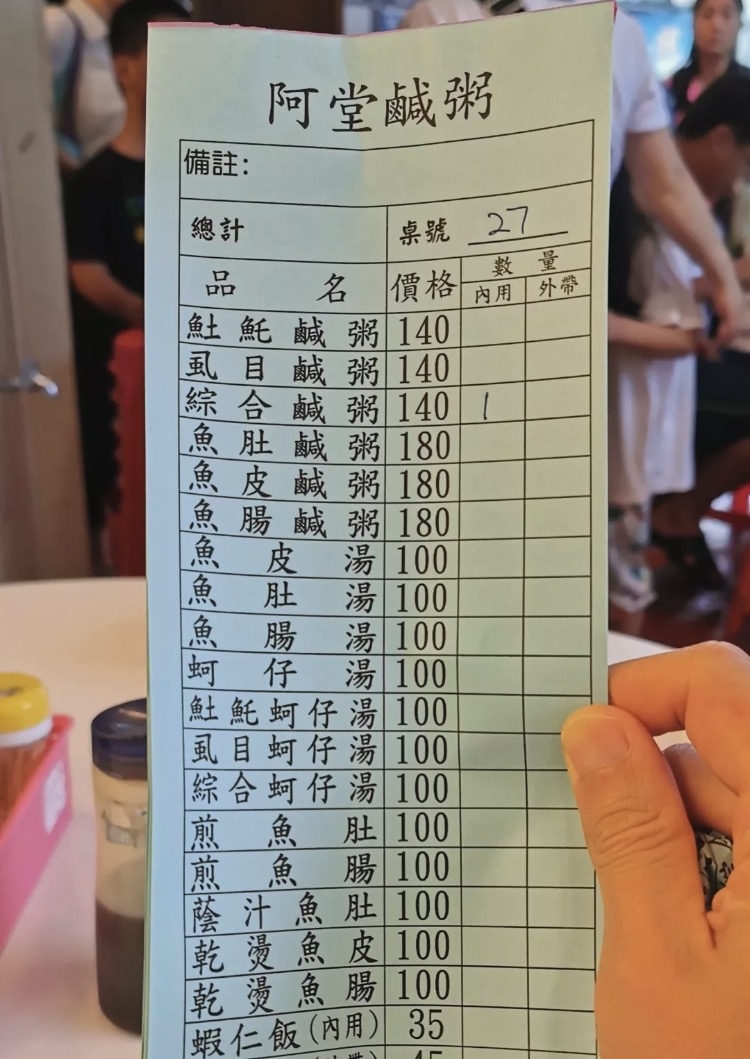 阿堂鹹粥
備註:
總計 桌號 27
品名 價格 數量
內用 外帶
魠魠鹹粥 140
虱目鹹粥 140
綜合鹹粥 140 1
魚肚鹹粥 180
魚皮鹹粥 180
魚腸鹹粥 180
魚皮湯 100
魚肚湯 100
魚腸湯 100
蚵仔湯 100
魠魠蚵仔湯 100
虱目蚵仔湯 100
綜合蚵仔湯 100
煎魚肚 100
煎魚腸 100
蔭汁魚肚 100
乾燙魚皮 100
乾燙魚腸 100
蝦仁飯(內用) 35